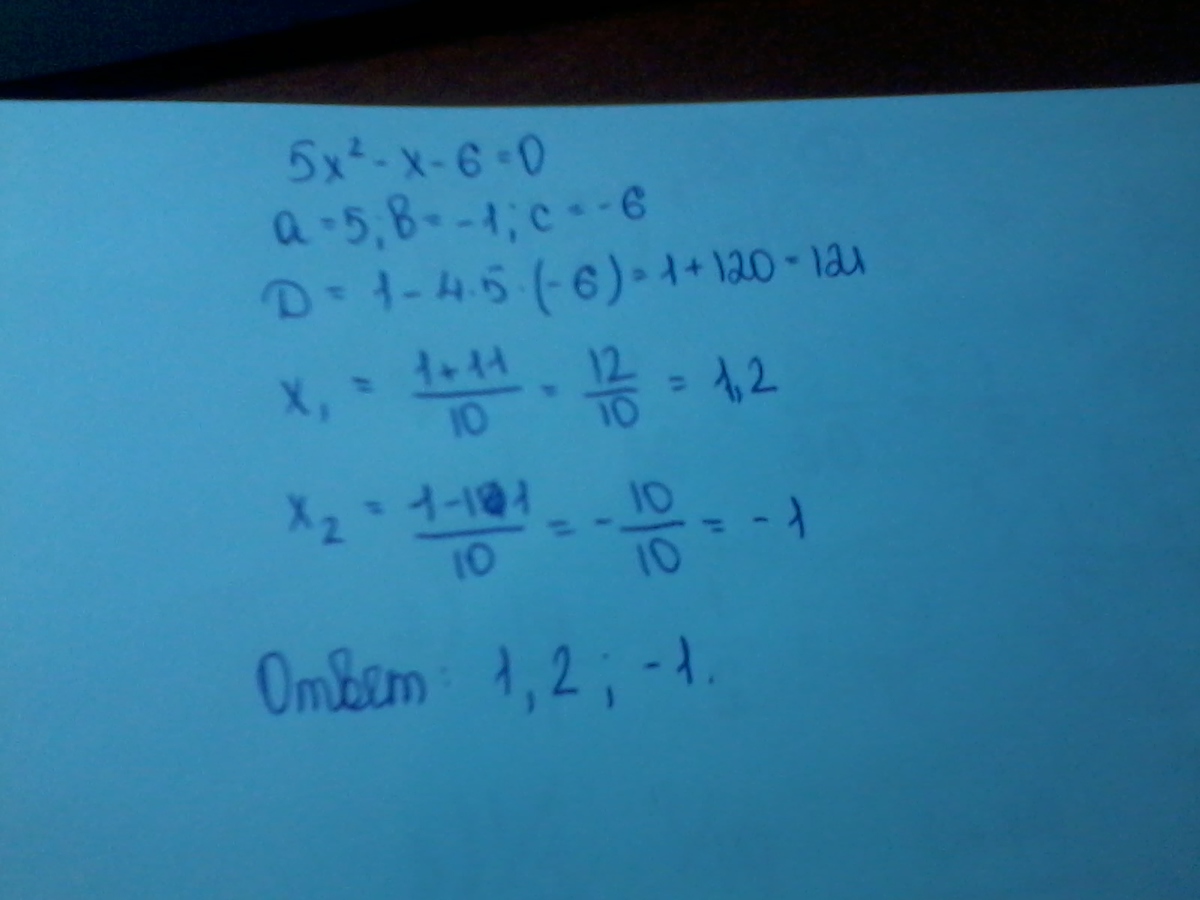 5x² - x - 6 = 0
a = 5; b = -1; c = -6
D = 1 - 4·5·(-6) = 1 + 120 = 121
x₁ = (1+11)/10 = 12/10 = 1,2
x₂ = (1-11)/10 = -10/10 = -1
Ответ: 1,2; -1.